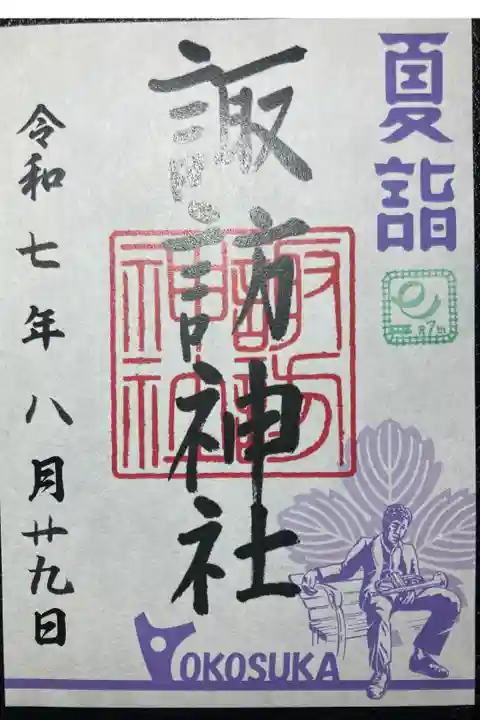 夏詣
諏訪神社
諏訪
神社
令和七年八月廿九日
YOKOSUKA